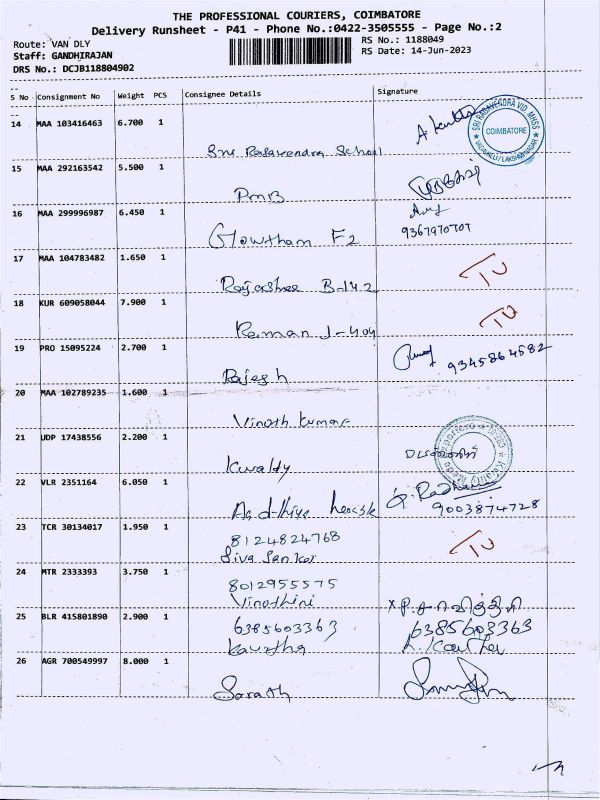 THE PROFESSIONAL COURIERS, COIMBATORE
Delivery Runsheet - P41 - Phone No.:0422-3505555 - Page No.:2
Route: VAN DLY
RS No.: 1188049
Staff: GANDHIRAJAN
RS Date: 14-Jun-2023
DRS No.: DCJB118804902
S No Consignment No Weight PCS Consignee Details Signature
14 MAA 103416463 6.700 1
Sri Ragavendra School
COIMBATORE
15 MAA 292163542 5.500 1
PMB
16 MAA 299996987 6.450 1
Gowtham F2
17 MAA 104783482 1.650 1
Rajashree B-142
18 KUR 609058044 7.900 1
Raman J-404
19 PRO 15095224 2.700 1
Rajesh
9345864582
20 MAA 102789235 1.600 1
Vinoth Kumar
21 UDP 17438556 2.200 1
Kwality
22 VLR 2351164 6.050 1
9003874728
23 TCR 30134017 1.950 1
8124824768
Siva Sankar
24 MTR 2333393 3.750 1
8012955575
Vinothini
25 BLR 415801890 2.900 1
6385603363
6385603363
Kavitha
26 AGR 700549997 8.000 1
Sarath